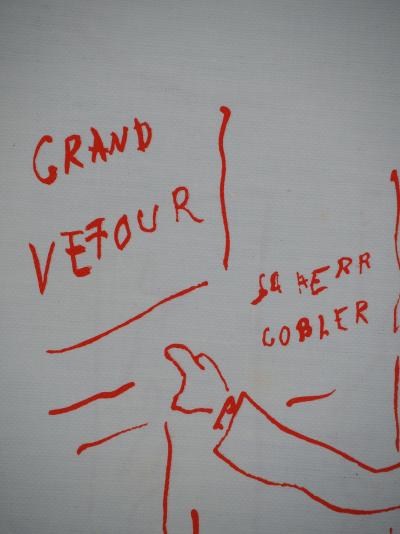 GRAND
VEFOUR
SHERR
COBLER